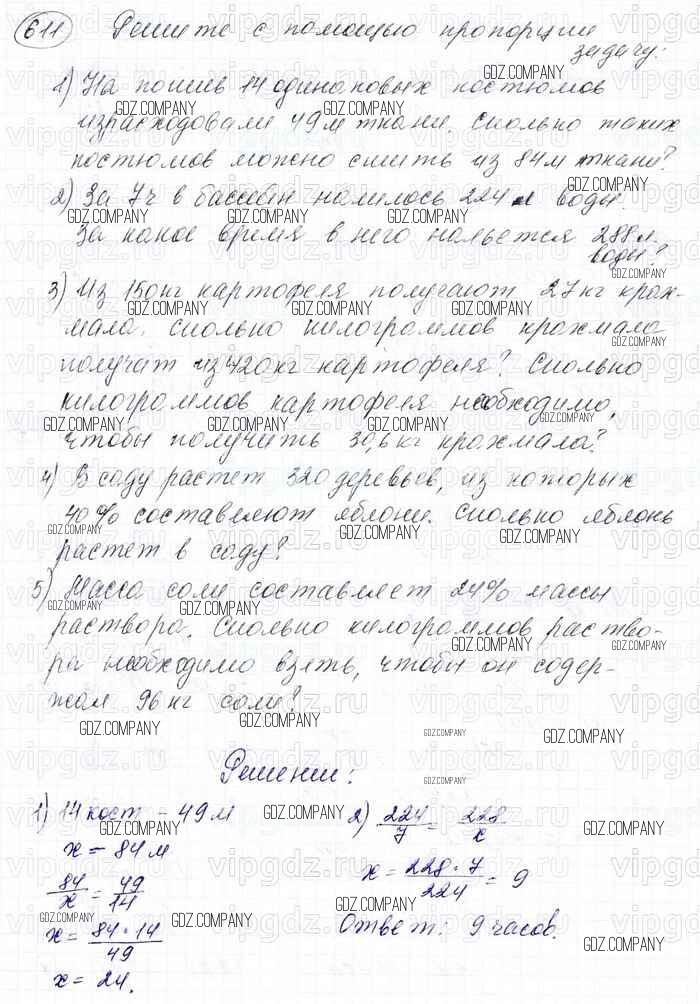 611 Решите с помощью пропорции
задачу:
1) На пошив 14 одинаковых костюмов
израсходовали 49 м ткани. Сколько таких
костюмов можно сшить из 84 м ткани?
2) За 7 ч в бассейн налилось 224 л воды.
За какое время в него нальется 288 л
воды?
3) Из 150 кг картофеля получают 27 кг крах-
мала. Сколько килограммов крахмала
получат из 420 кг картофеля? Сколько
килограммов картофеля необходимо,
чтобы получить 30,6 кг крахмала?
4) В саду растет 320 деревьев, из которых
40% составляют яблони. Сколько яблонь
растет в саду?
5) Масса соли составляет 24% массы
раствора. Сколько килограммов раство-
ра необходимо взять, чтобы он содер-
жал 96 кг соли?
Решение:
1) 14 кост - 49 м
x - 84 м
84/x = 49/14
x = 84·14/49
x = 24.
2) 224/7 = 228/x
x = 228·7/224 = 9
Ответ: 9 часов.